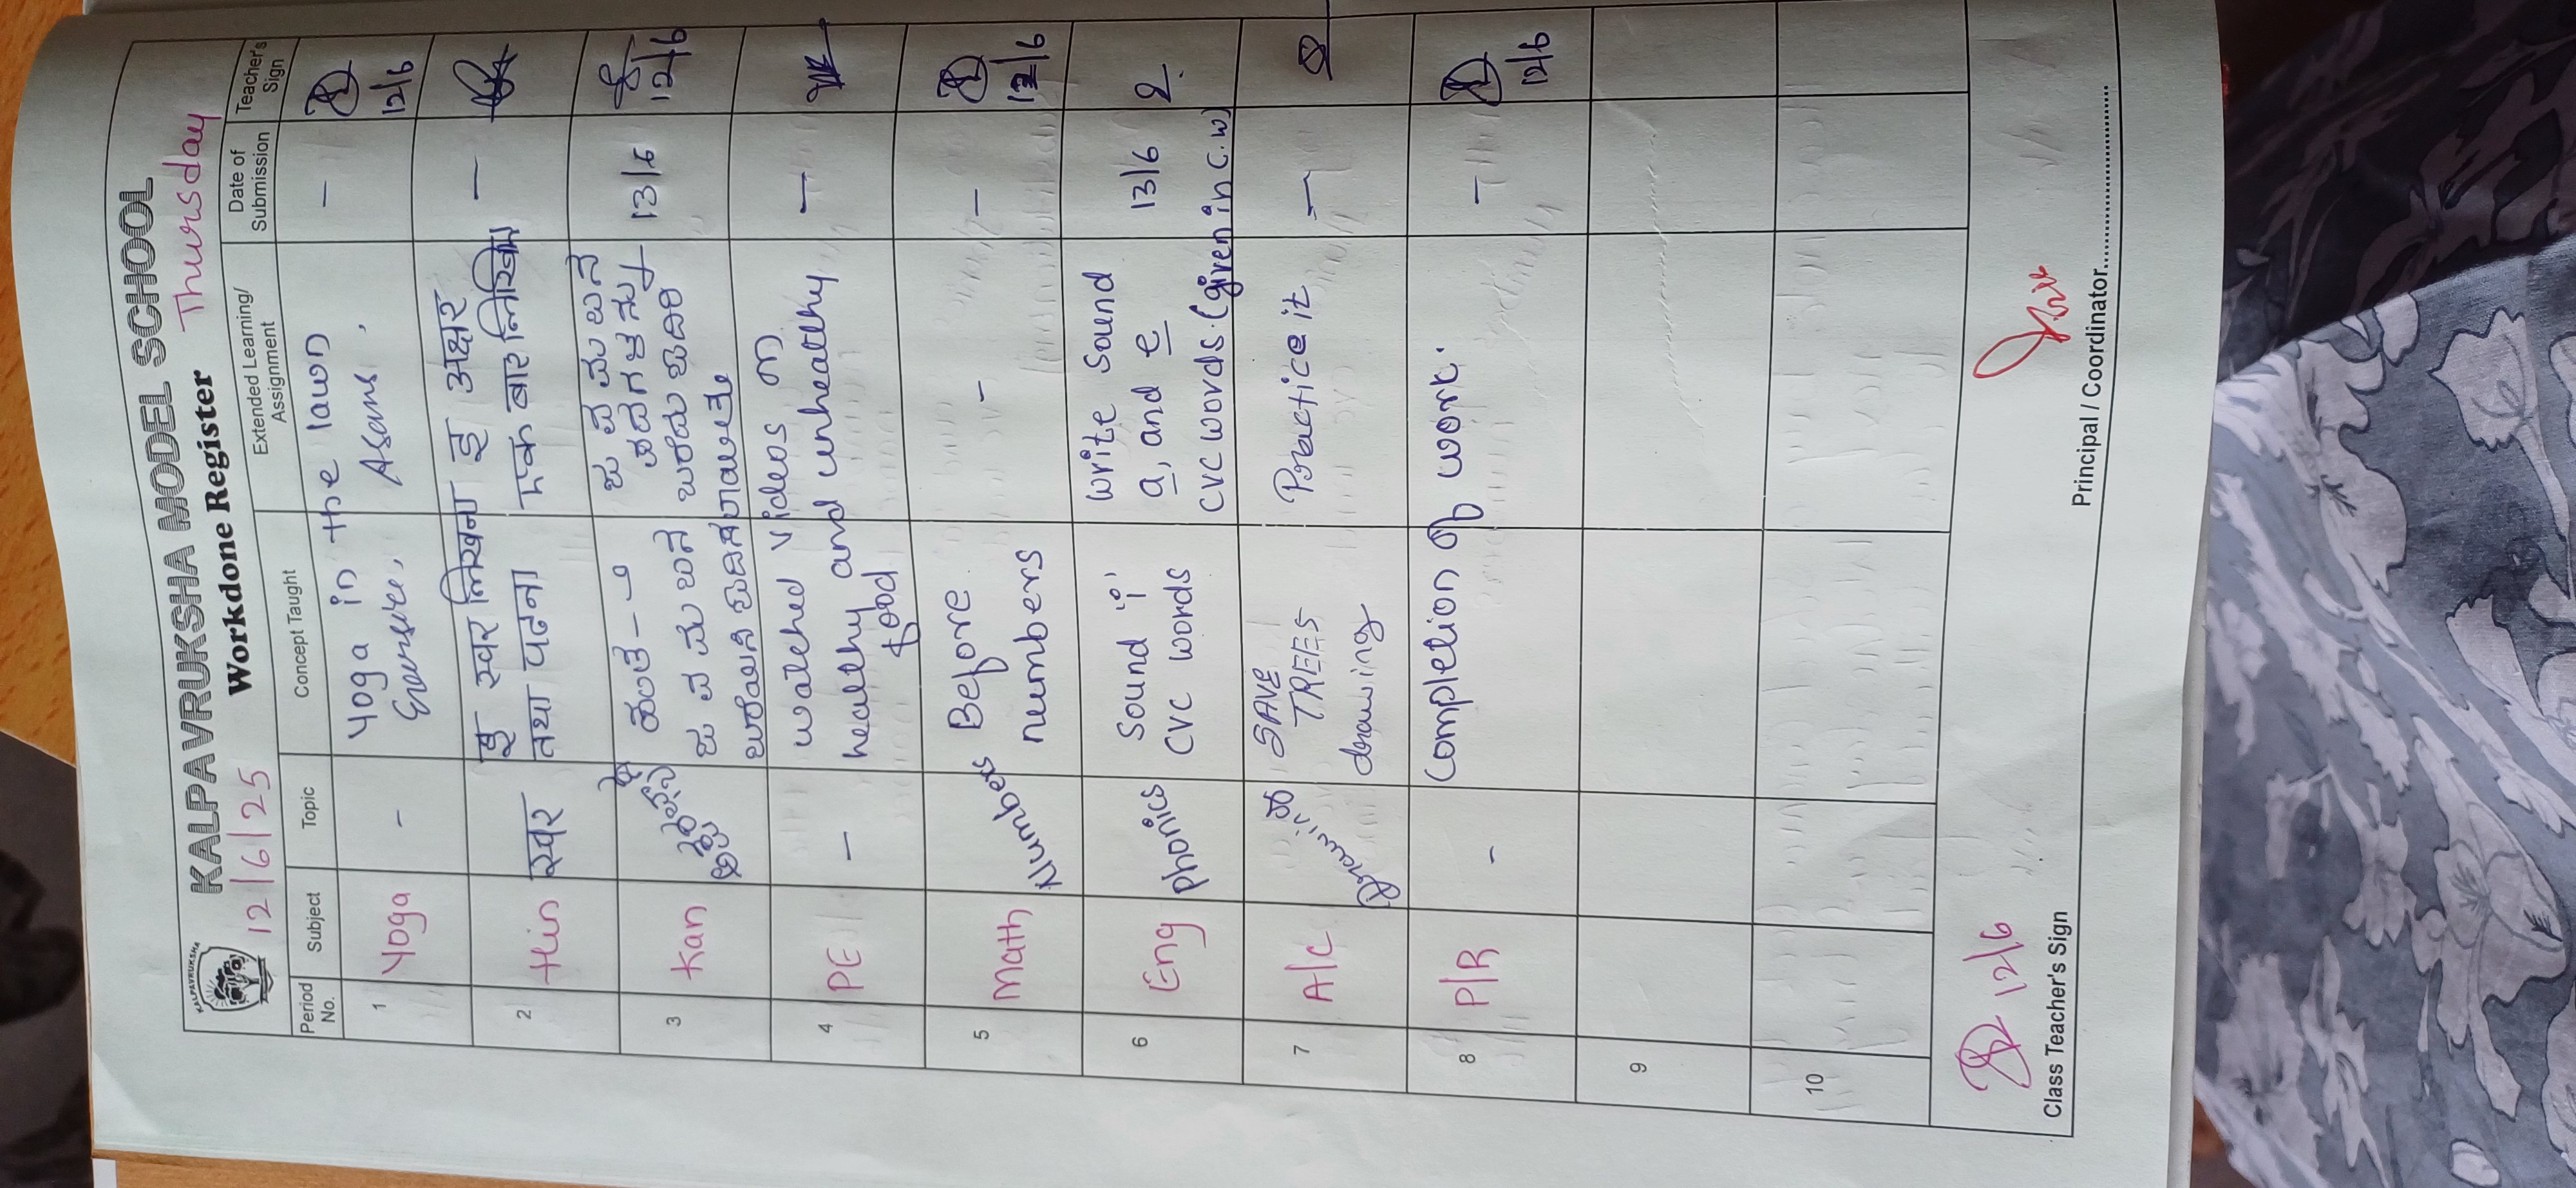 KALPAVRUKSHA
KALPAVRUKSHA MODEL SCHOOL
12/6/25 Workdone Register Thursday
Period No. Subject Topic Concept Taught Extended Learning/ Assignment Date of Submission Teacher's Sign
1 Yoga - Yoga in the lawn - 12/6
Asans,
2 Hin स्वर इ स्वर लिखना इ अक्षर -
तथा पढना एक बार लिखिए
3 Kan ಜ ವ ಮ ಬ ನ 13/6 12/6
ಜ ವ ಮ ಬ ನ ಪದಗಳನ್ನು
ಬರೆದು
4 PE - watched videos on -
healthy and unheatlhy
food
5 Math Numbers Before - - 12/6
numbers
6 Eng phonics Sound 'i' write sound 13/6
cvc words a, and e
cvc words. (given in c.w)
7 A/C Drawing SAVE Practice it -
TREES
drawing
8 P/R - Completion of work. - 12/6
9
10
12/6
Class Teacher's Sign Principal / Coordinator